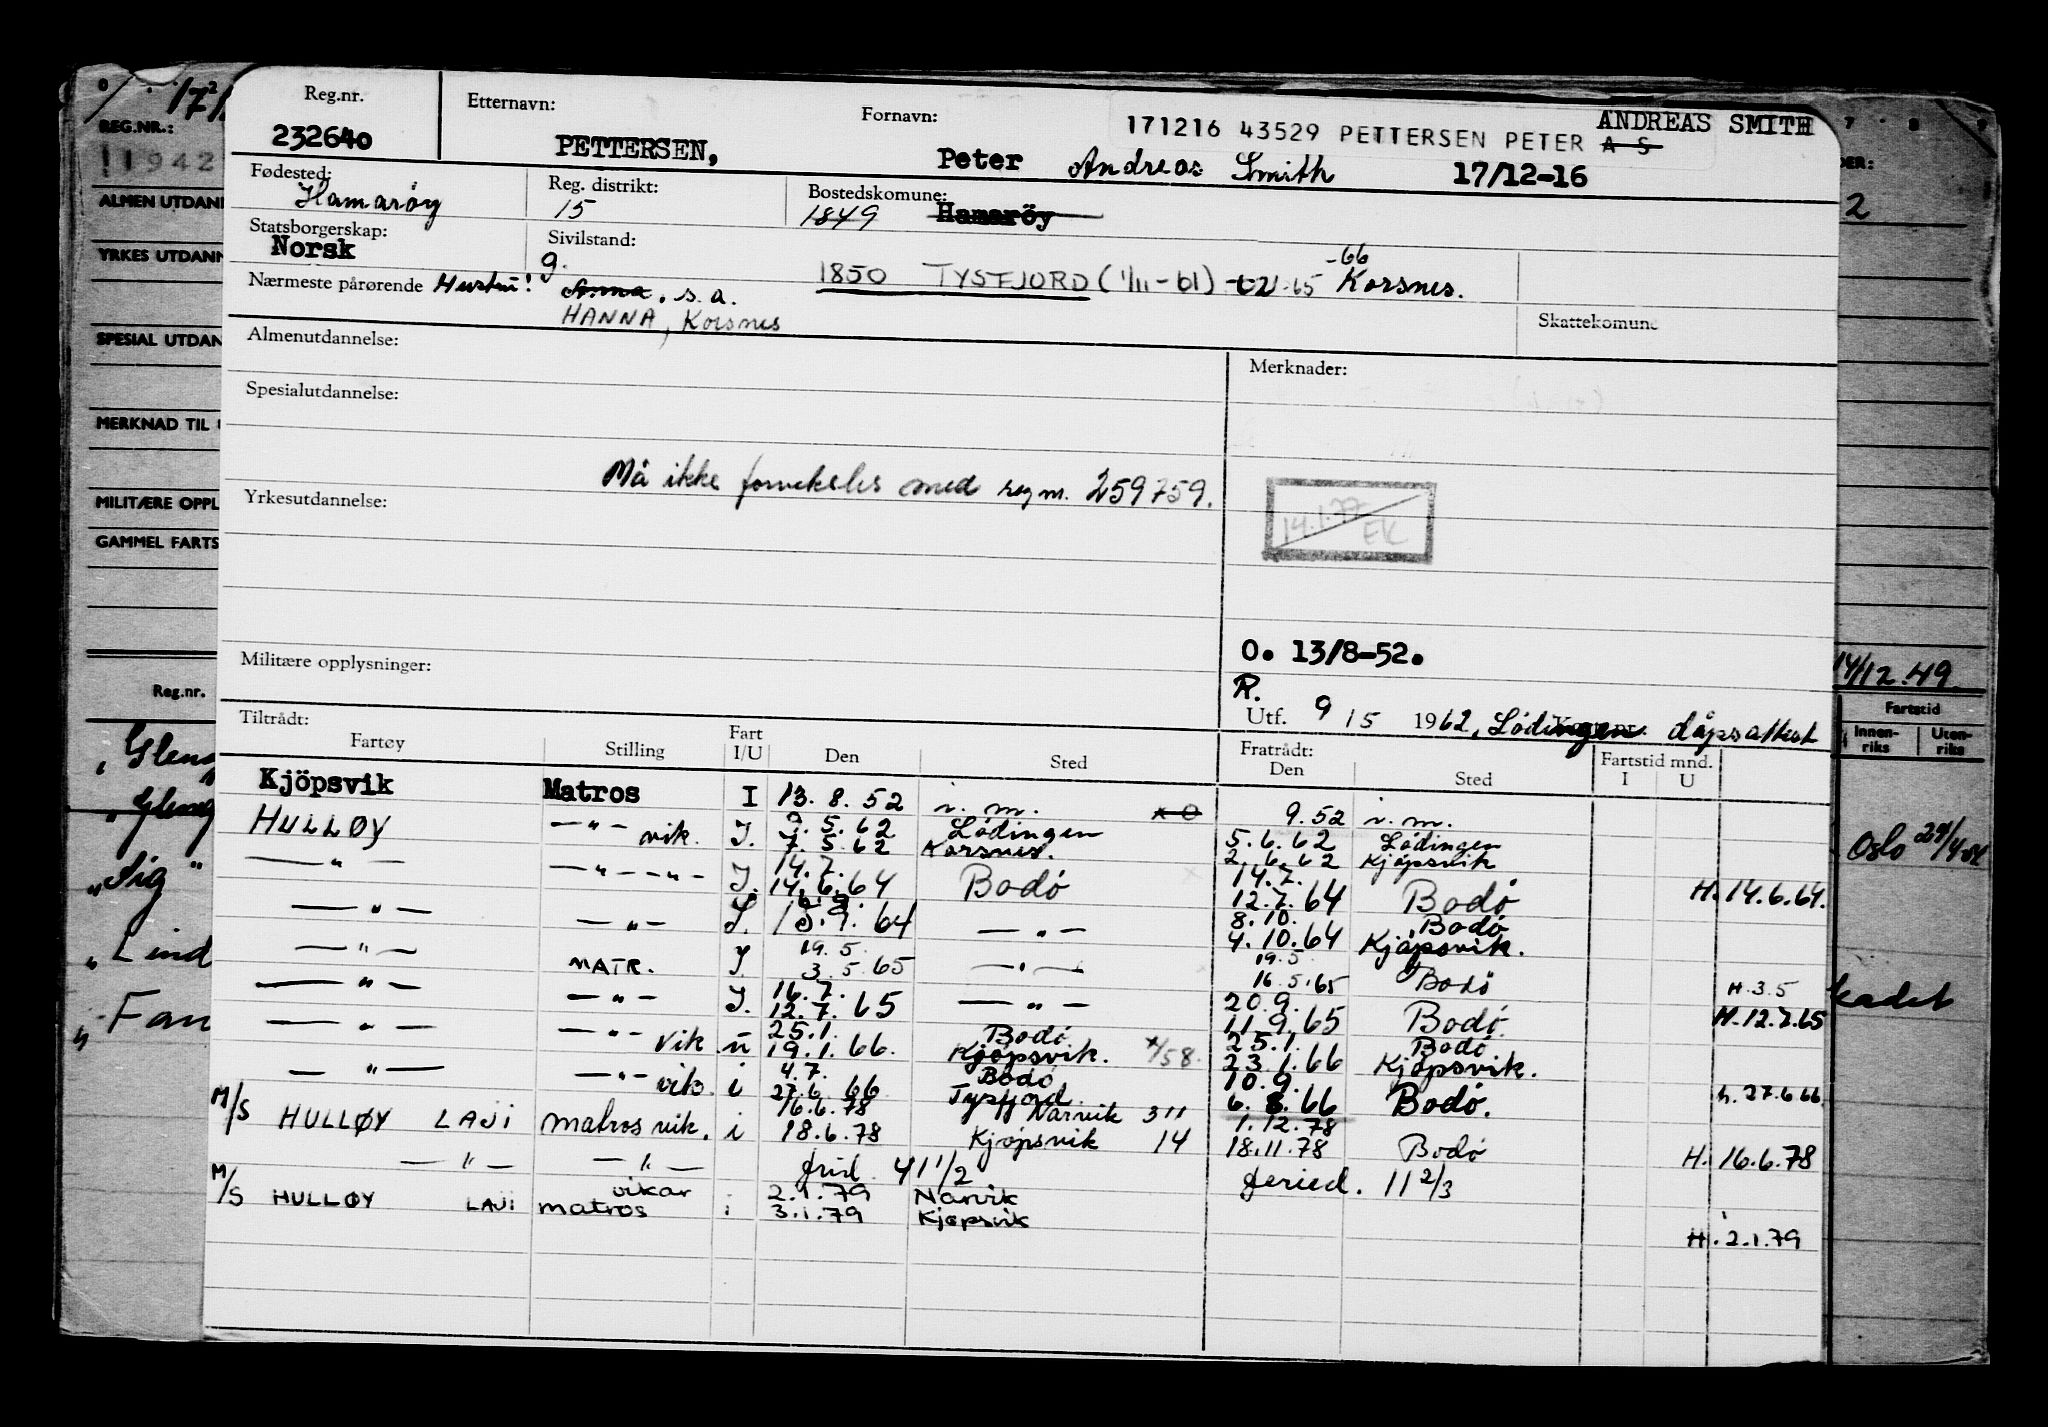 Reg.nr. Etternavn: Fornavn: 171216 43529 PETTERSEN PETER A S ANDREAS SMITH
232640 PETTERSEN, Peter Andreas Smith 17/12-16
Fødested: Hamarøy Reg. distrikt: 15 Bostedskomune: 1849 Hamarøy
Statsborgerskap: Norsk Sivilstand: g.
1850 TYSFJORD (1/11-61) -65 -66 Korsnes.
Nærmeste pårørende Hustru: Anna, s.a.
HANNA, Korsnes
Skattekomune
Almenutdannelse: Merknader:
Spesialutdannelse:
Må ikke forveksles med regnr. 259759.
Yrkesutdannelse:
14.1.77 EK
O. 13/8-52.
Militære opplysninger: R.
Utf. 9/5 1962, Lødingen dåpsattest
Tiltrådt: Fratrådt: Fartstid mnd.
Fartøy Stilling Fart I/U Den Sted Den Sted I U
Kjöpsvik Matros I 13. 8. 52 i. m. 9.52 i. m.
HULLØY —"— vik. I. 9. 5. 62 Lødingen 5. 6. 62 Lødingen
7. 5 62 Korsnes. 2. 6. 62 Kjøpsvik
—"— —"— —"— I. 14.7. 14.7.
14.6.64 Bodø 12.7.64 Bodø H. 14.6.64.
—"— —"— I. 8.10. Bodø
9. 64 —"— 4.10.64 Kjøpsvik.
—"— MATR. I 19.5. 19.5
3.5.65 —"— 16.5.65 Bodø H.3.5
—"— —"— I. 16.7. 20.9.
12.7.65 —"— 11.9.65 Bodø H.12.7.65
—"— —"— vik 25.1. Bodø 25.1. Bodø
19.1.66. Kjøpsvik. 23.1.66 Kjøpsvik.
—"— —"— vik. i 4.7. Bodø 10.9.
27.6.66 Tysfjord 6. 8.66 Bodø. h. 27.6 66
M/S HULLØY LAJI matros vik. i 16.6.78 Narvik 311 1.12.78
18.6.78 Kjøpsvik 14 18.11.78 Bodø H. 16.6.78
—"— —"— frid. 41 1/2 feried. 11 2/3
M/S HULLØY LAJI vikar matros i 2.1.79 Narvik
3.1.79 Kjøpsvik
H. 2.1.79
REG.NR.:
11942
ALMEN UTDAN
YRKES UTDANN
SPESIAL UTDAN
MERKNAD TIL
MILITÆRE OPPL
GAMMEL FARTS
Reg.nr.
"Sig"
"Lind
2
14/12.49
Fartstid
Innen-riks Uten-riks
Oslo